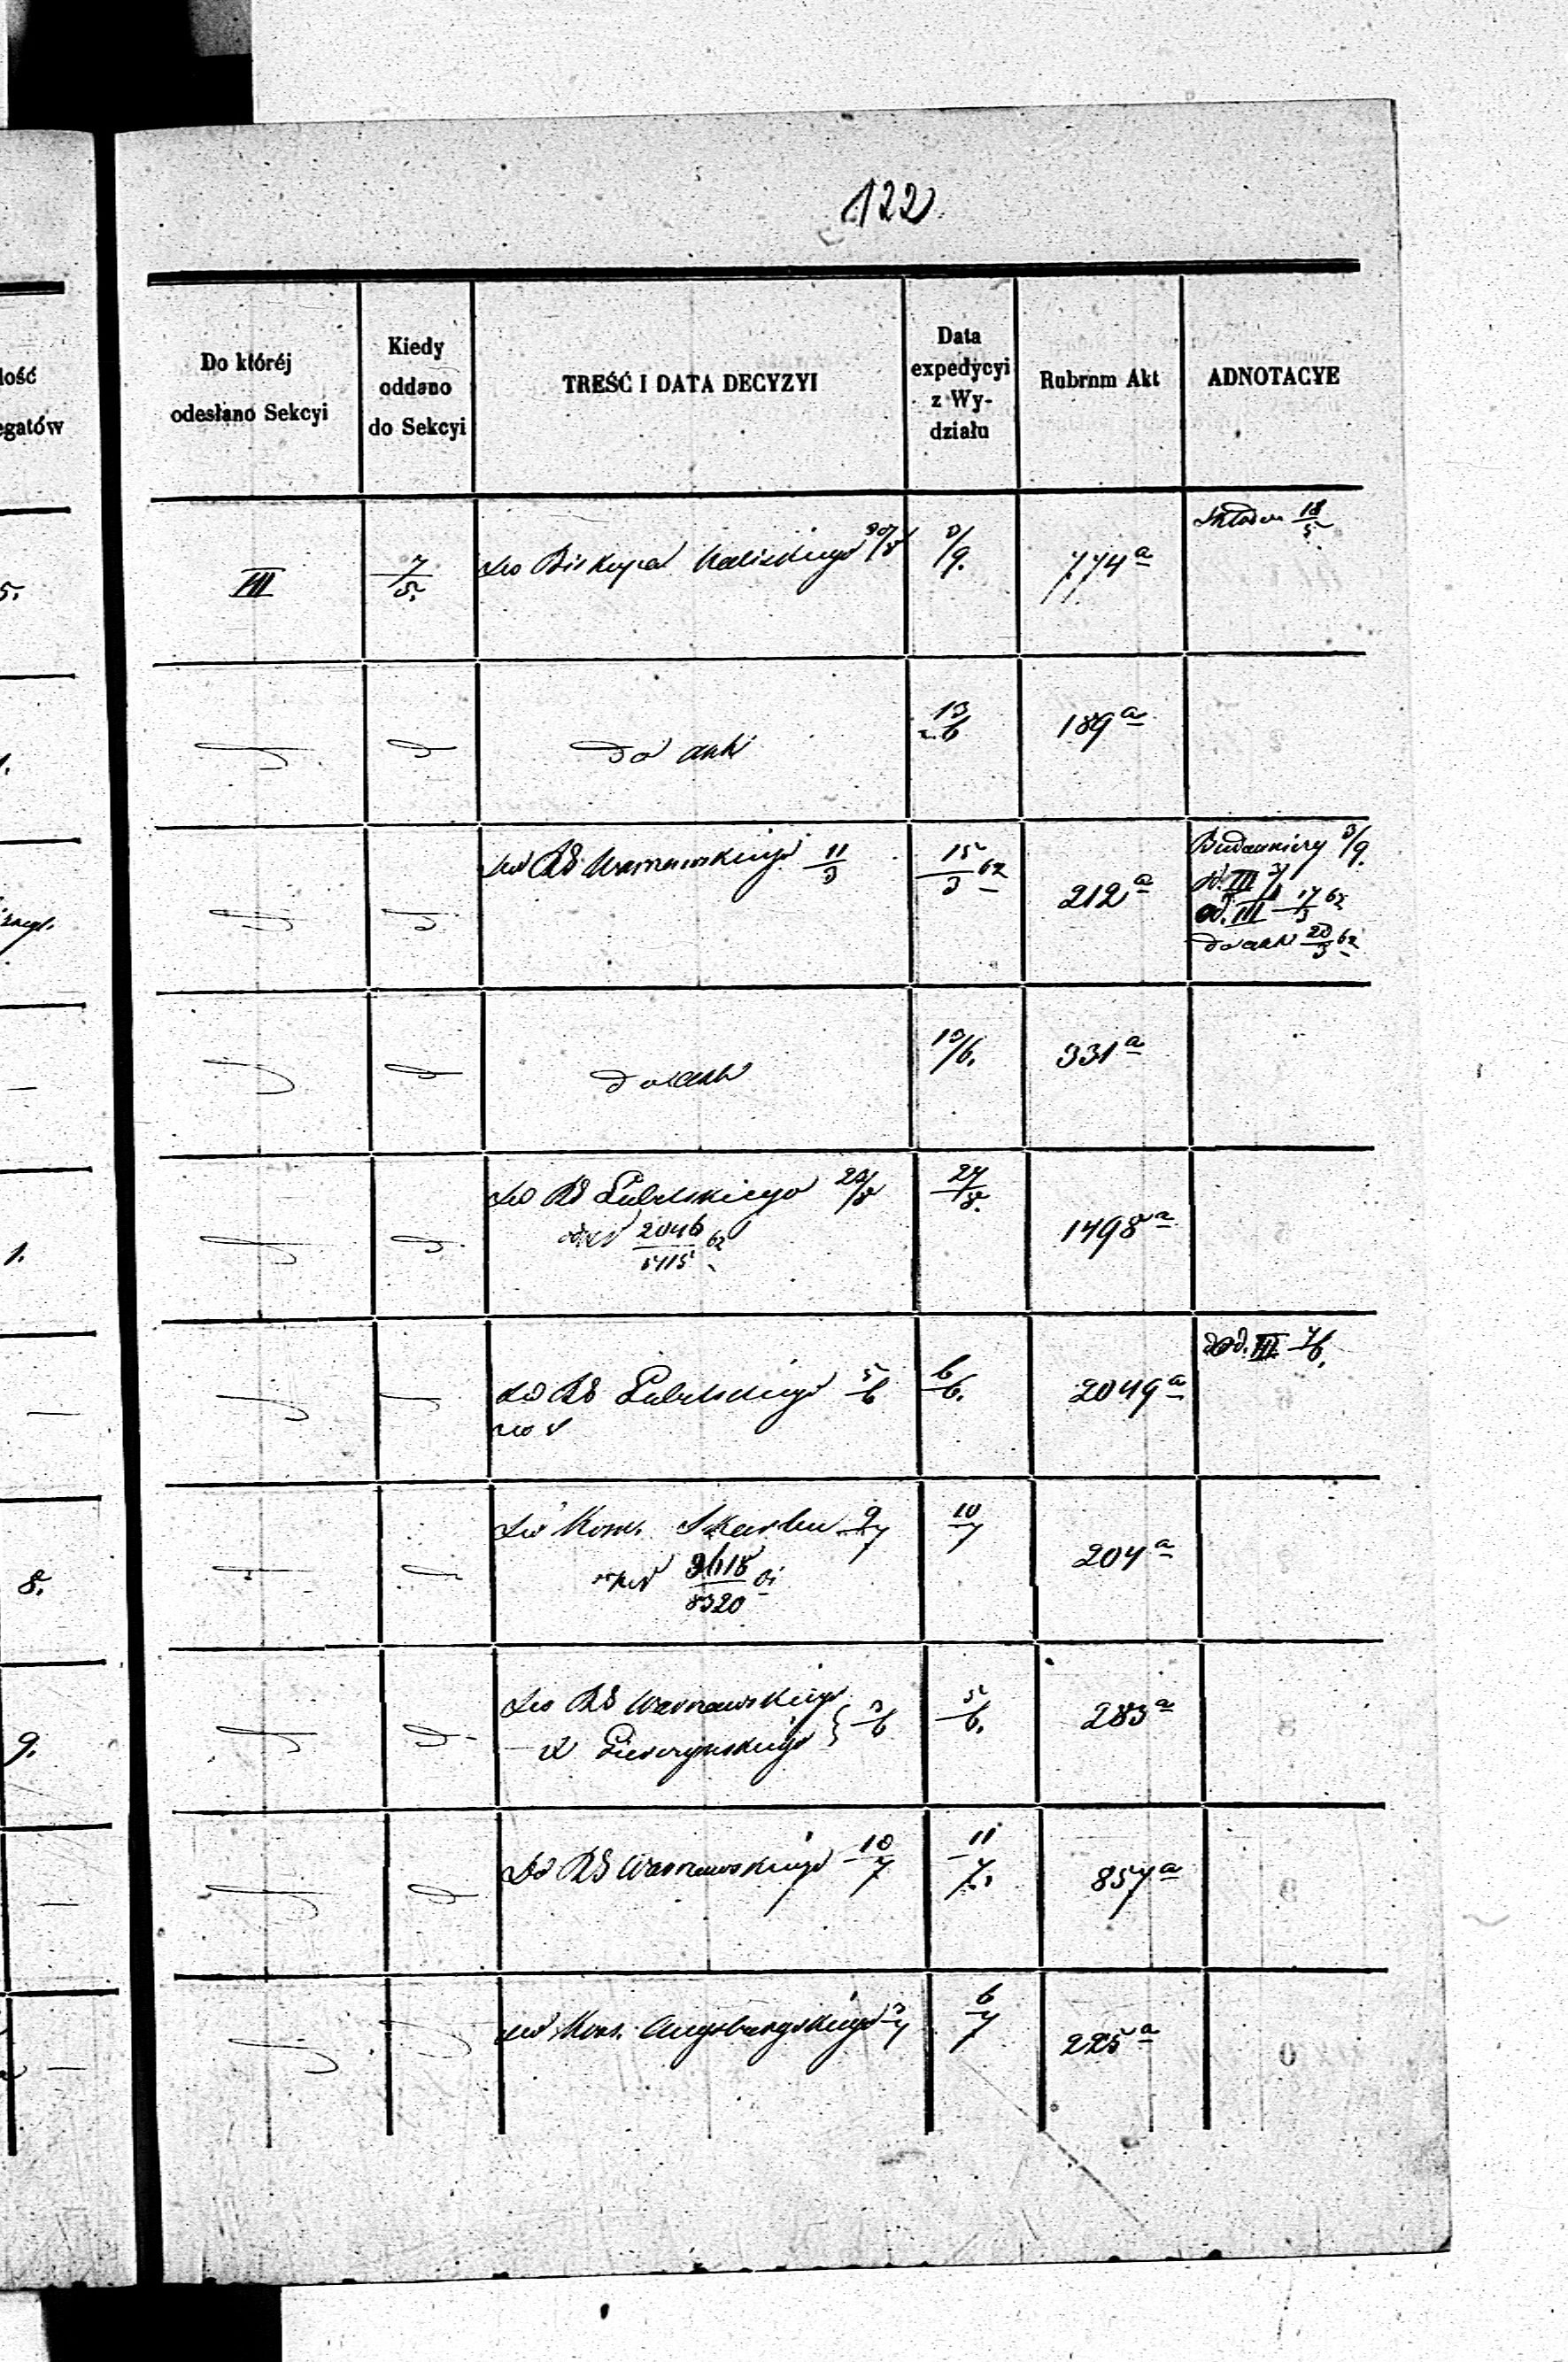 122
lość
egatów
Do któréj
odesłano Sekcyi
Kiedy
oddano
do Sekcyi
TREŚĆ I DATA DECYZYI
Data
expedycyi
z Wy-
działu
Rubrum Akt
ADNOTACYE
5.
III
7/5.
do Biskupa Kaliskiego 30/8
3/9.
774 a
18/5
1.
do akt
13/6
189 a
do RG Warszawskiego 11/3
15/3 62
212 a
Budowniczy 3/9.
od. III 17/3 62
do akt 20/3 62
do akt
13/6.
331 a
1.
do RG Lubelskiego 22/8
2046/5415 62
27/8.
1498 a
do RG Lubelskiego 5/6
6/6.
2049 a
od. III 7/6.
8.
do Kom. Skarbu 9/7
8320
10/7
204 a
9.
do RG Warszawskiego
3/6
5/6.
283 a
do RG Warszawskiego 10/7
11/7.
857 a
do Kons. Augsburgskiego 3/7
6/7
225 a